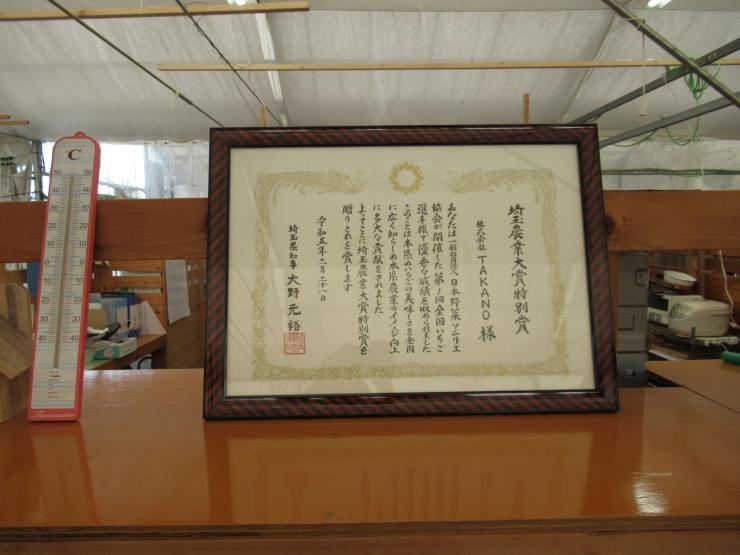 埼玉農業大賞特別賞
株式会社 TAKANO 様
あなたは一般社団法人日本野菜ソムリエ
協会が開催した第1回全国いちご
選手権で優秀な成績を収められました
このことは本県のいちごの美味しさを全国
に広く知らしめ本県農業のイメージ向上
に多大な貢献をされました
よってここに埼玉農業大賞特別賞を
贈りこれを賞します
令和五年二月二十一日
埼玉県知事 大野元裕
C
50 50
40 40
30 30
20 20
10 10
0 0
10 10
20 20
30 30
40 40
Thermometer